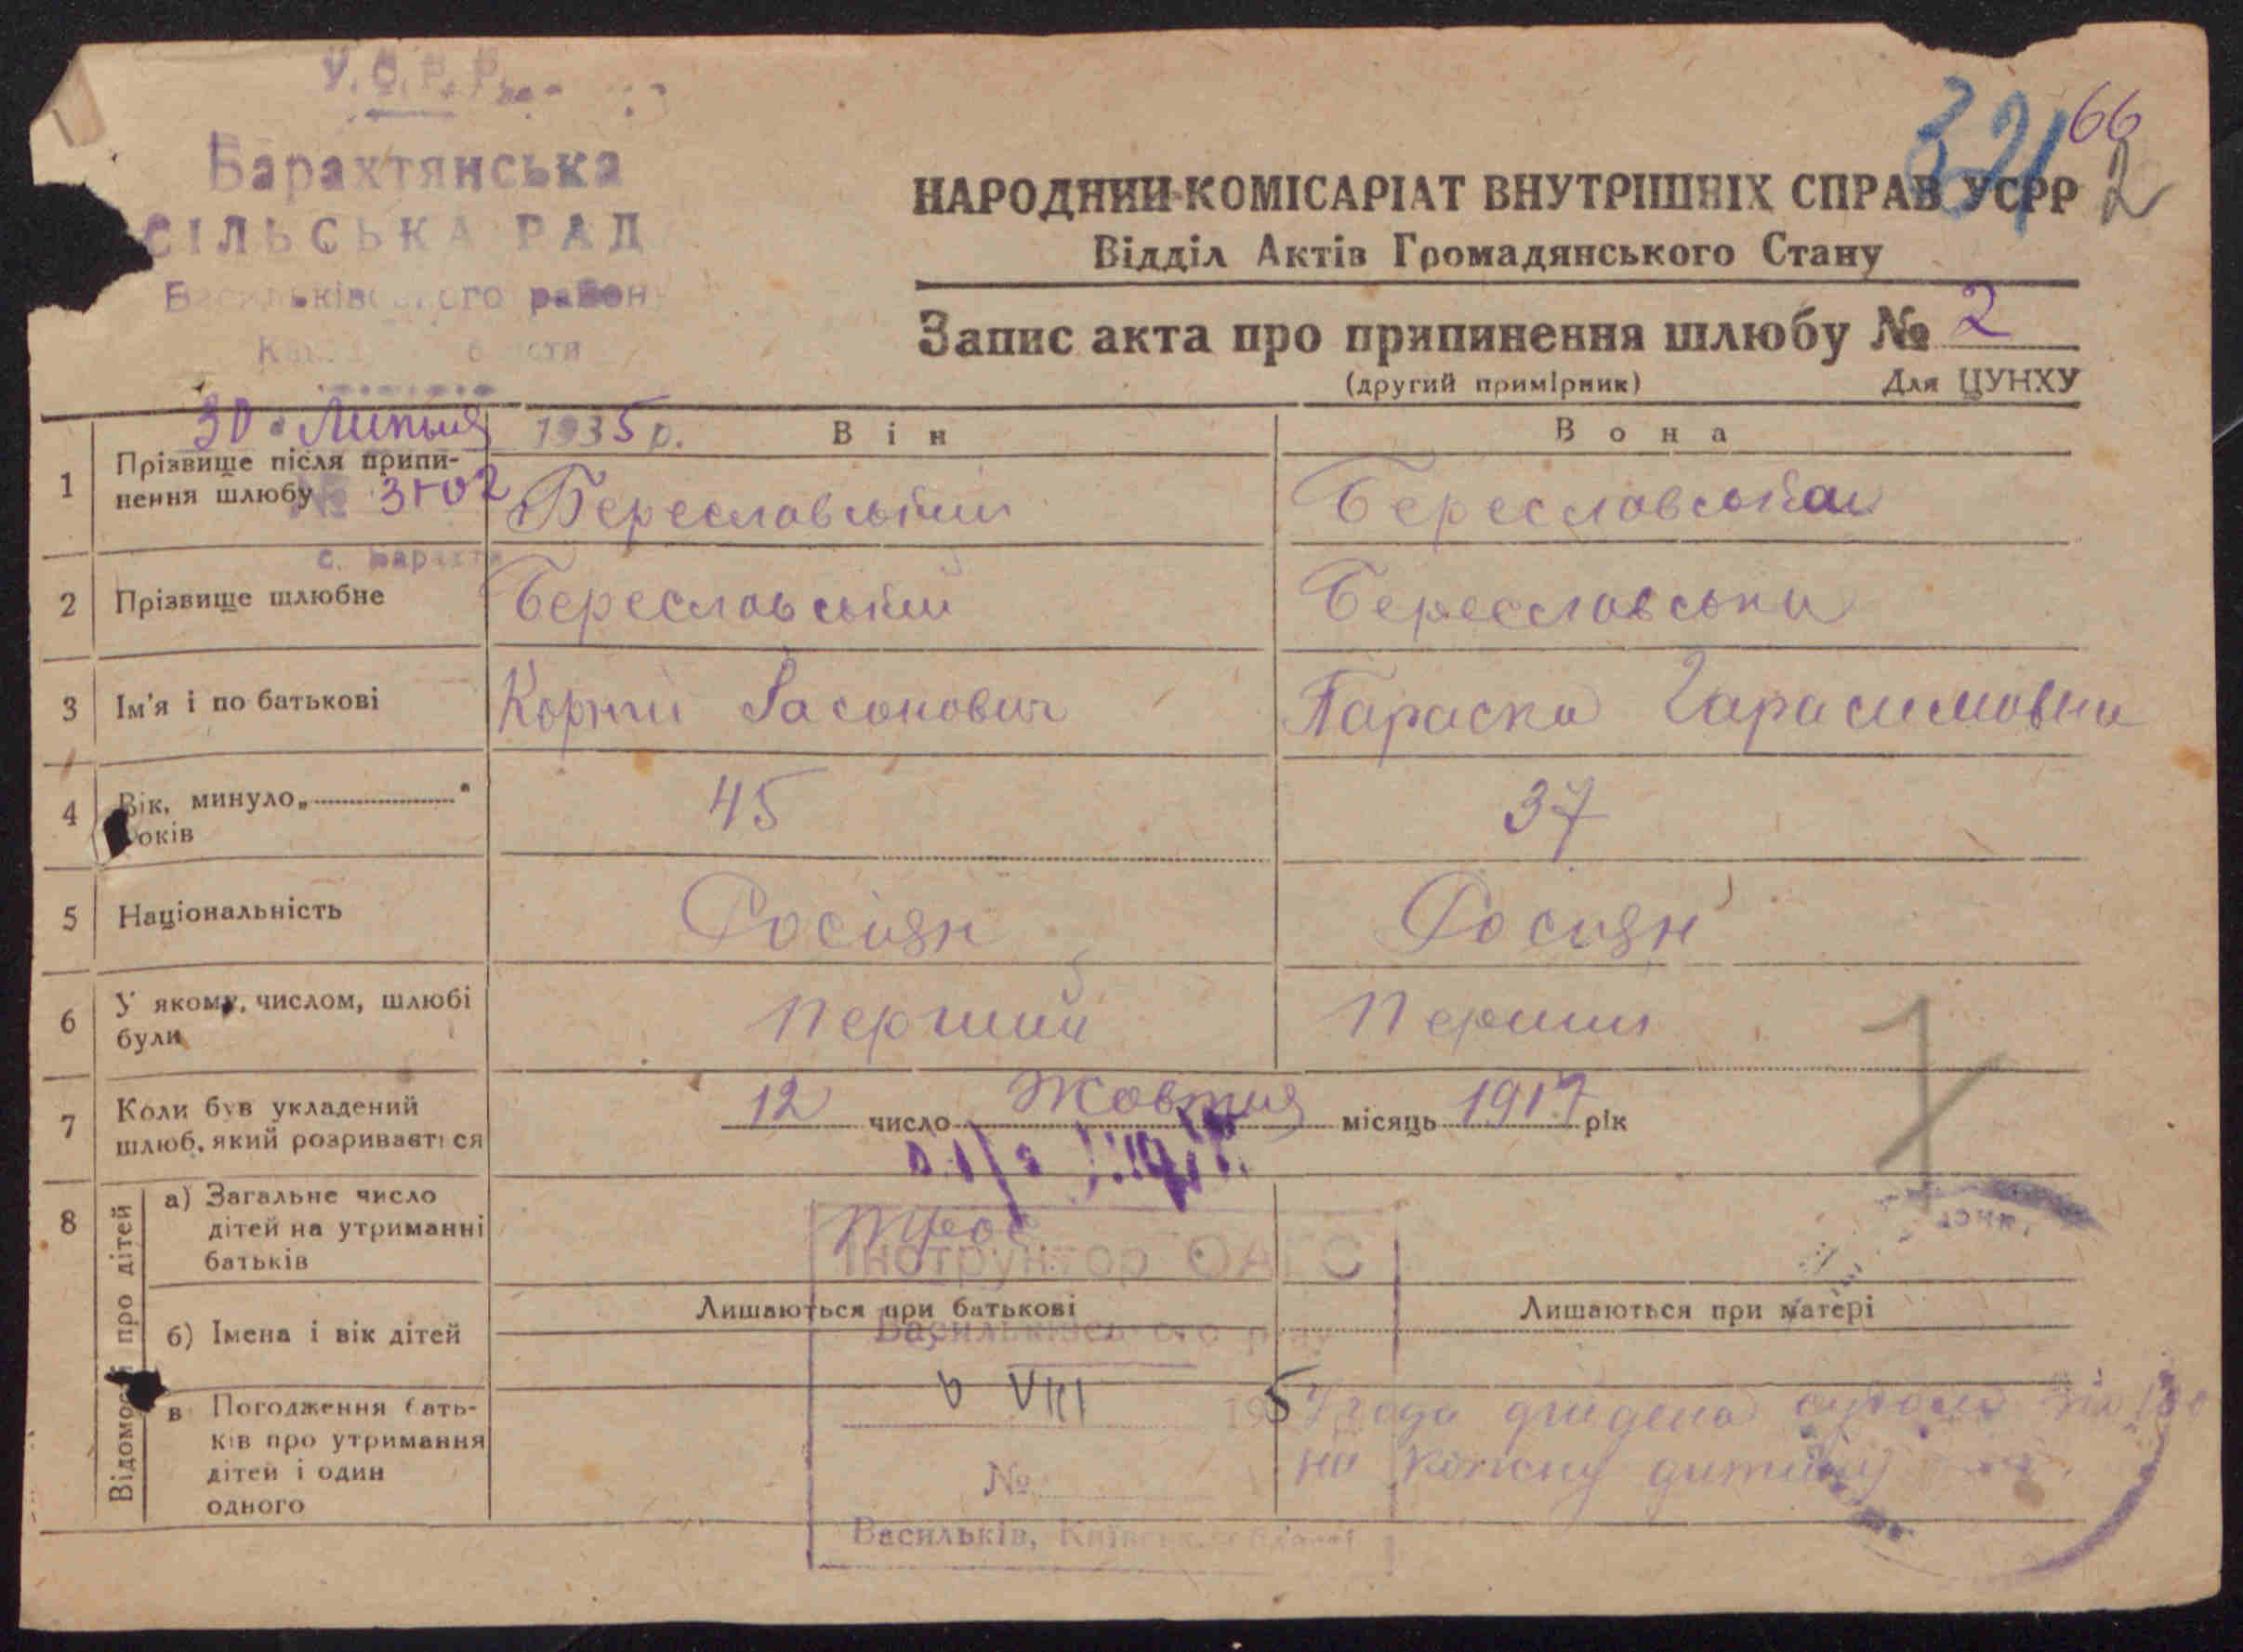 У.С.Р.Р.
Барахтянська
СІЛЬСЬКА РАД
Васильківського району
30 Липня 1935 р.
№ 3102
с. Барахти
321 66
2
НАРОДНИЙ КОМІСАРІАТ ВНУТРІШНІХ СПРАВ УСРР
Відділ Актів Громадянського Стану
Запис акта про припинення шлюбу № 2
(другий примірник) Для ЦУНХУ
Він Вона
1 Прізвище після припи-
нення шлюбу Береславський Береславська
2 Прізвище шлюбне Береславський Береславська
3 Ім'я і по батькові Корній Сасонович Параска Гарасимовна
4 Вік, минуло „ “
років 45 37
5 Національність Росіян Росіян
6 У якому, числом, шлюбі
були Перший Перший
7 Коли був укладений
шлюб, який розривається 12 число Жовтня місяць 1917 рік
8 Відомості про дітей
а) Загальне число
дітей на утриманні
батьків Троє
Інструктор ОАГС
Васильківського р-ну
б) Імена і вік дітей Лишаються при батькові Лишаються при матері
VIII 1935
в Погодження бать-
ків про утримання
дітей і один
одного
на кожну дитину
№
Васильків, Київської області